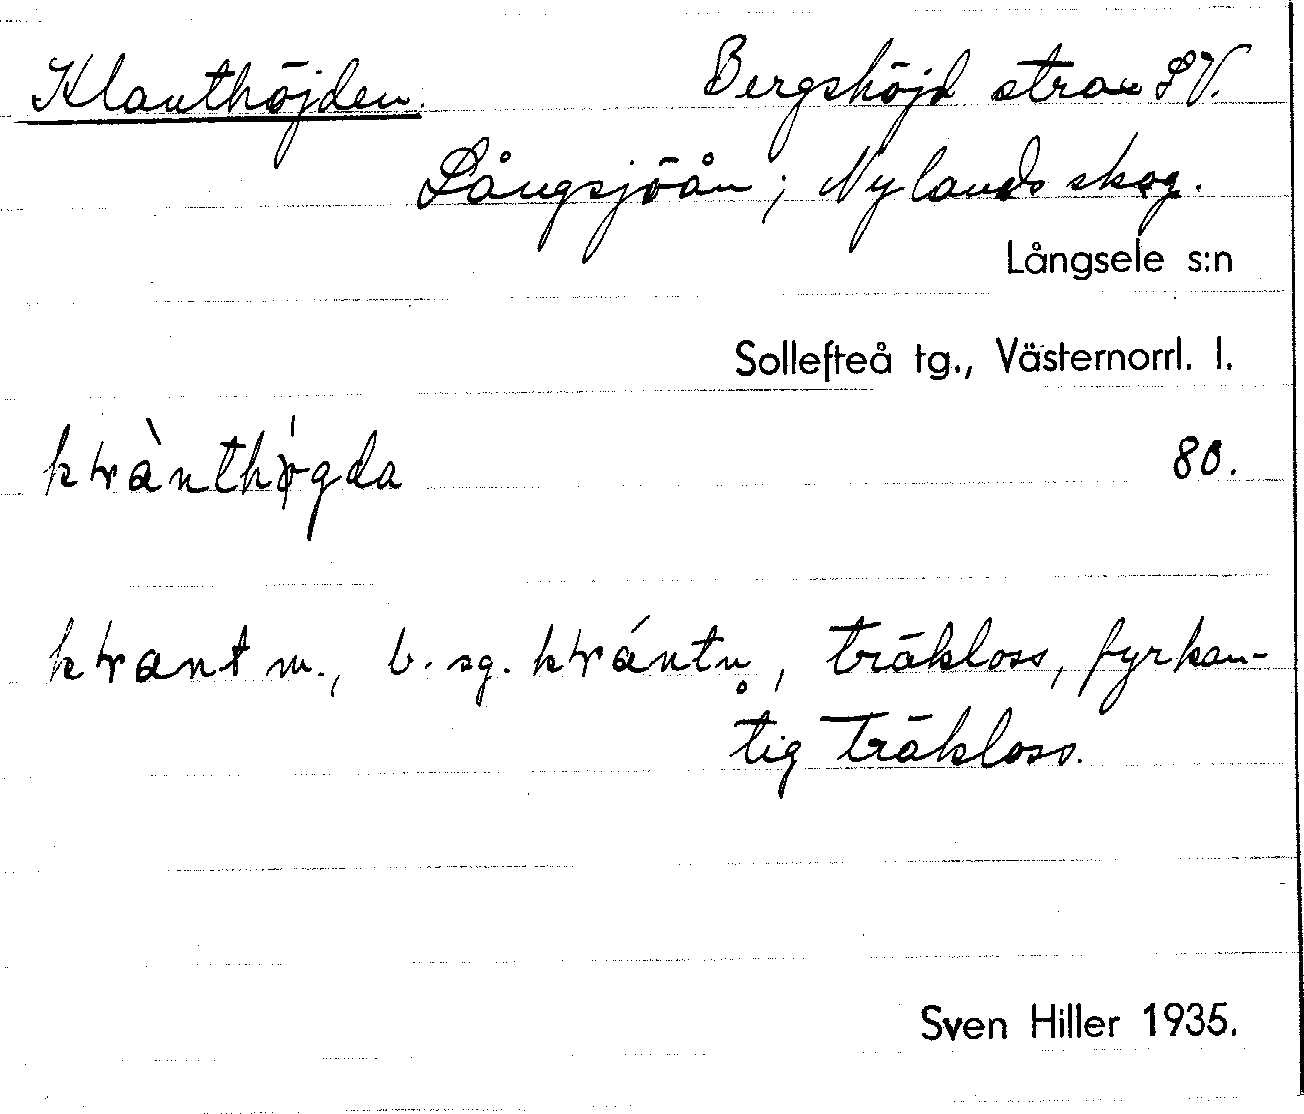 Klanthöjden. Bergshöjd strax SV.
Långsjöån; Nylands skog.
Långsele s:n
Sollefteå tg., Västernorrl. l.
80.
m., b. sg. träkloss, fyrkan-
tig träkloss.
Sven Hiller 1935.